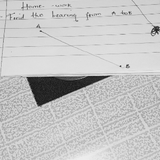 Home work
Find the bearing from A to B
A
B